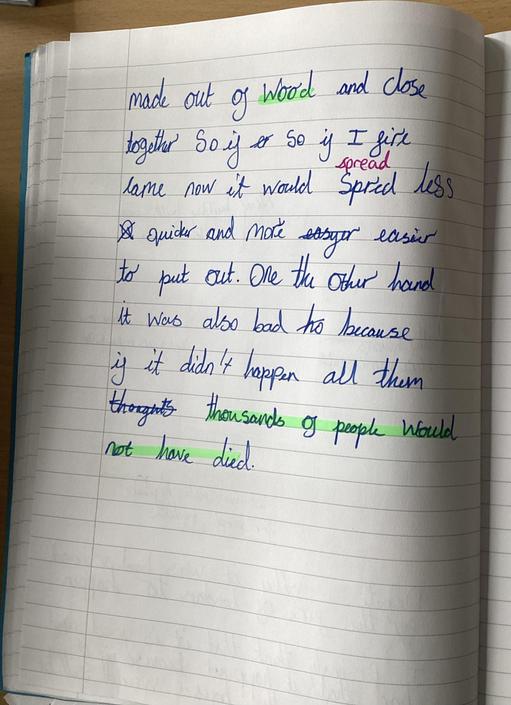 made out of wood and close
together So if so if I fire
came now it would Spred less
spread
quicker and more easyer easier
to put out. One the other hand
it was also bad to because
if it didn't happen all them
thoughts thousands of people would
not have died.